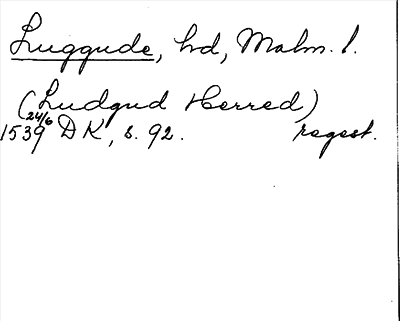 Luggude, hd, Malm. l.
(Ludgud Herred)
24/6
1539 DK, s. 92. regest.